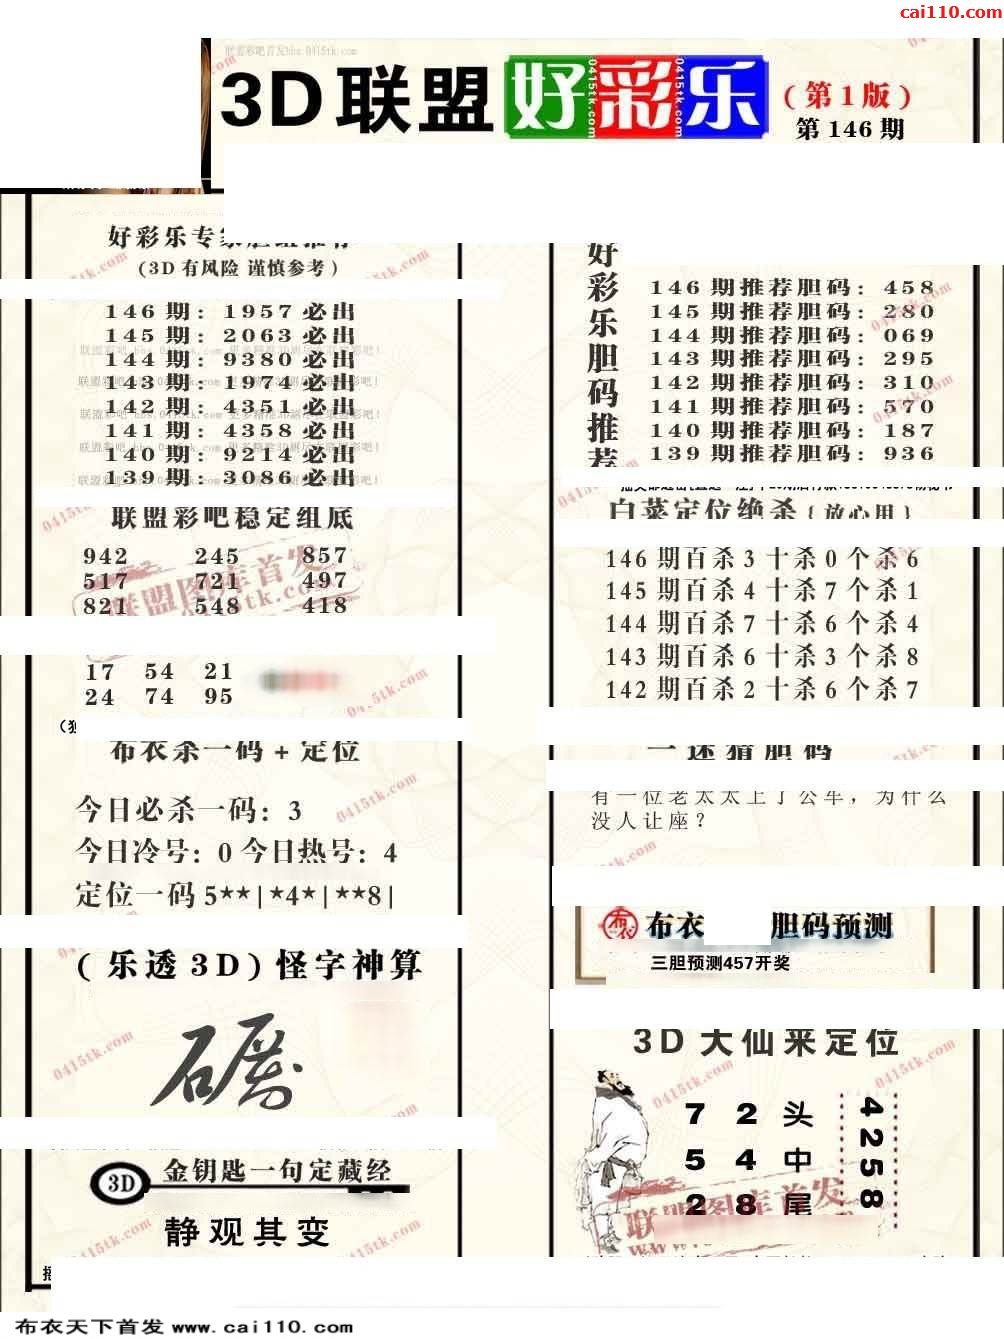 cai110.com
联盟彩吧首发bbs.0415tk.com
3D联盟好彩乐
(第1版)
第146期
好彩乐专家胆组推荐
(3D有风险 谨慎参考)
146期: 1957必出
145期: 2063必出
144期: 9380必出
143期: 1974必出
142期: 4351必出
141期: 4358必出
140期: 9214必出
139期: 3086必出
联盟彩吧稳定组底
942 245 857
517 721 497
821 548 418
17 54 21
24 74 95
布衣杀一码+定位
今日必杀一码: 3
今日冷号: 0 今日热号: 4
定位一码 5**|*4*|**8|
(乐透3D)怪字神算
3D
金钥匙一句定藏经
静观其变
好彩乐胆码推荐
146期推荐胆码: 458
145期推荐胆码: 280
144期推荐胆码: 069
143期推荐胆码: 295
142期推荐胆码: 310
141期推荐胆码: 570
140期推荐胆码: 187
139期推荐胆码: 936
白菜定位绝杀{放心用}
146期百杀3十杀0个杀6
145期百杀4十杀7个杀1
144期百杀7十杀6个杀4
143期百杀6十杀3个杀8
142期百杀2十杀6个杀7
一迷猜胆码
有一位老太太上了公车，为什么
没人让座？
布衣 胆码预测
三胆预测457开奖
3D大仙来定位
7 2 头
5 4 中
2 8 尾
4258
联盟图库首发
0415tk.com
布衣天下首发 www.cai110.com